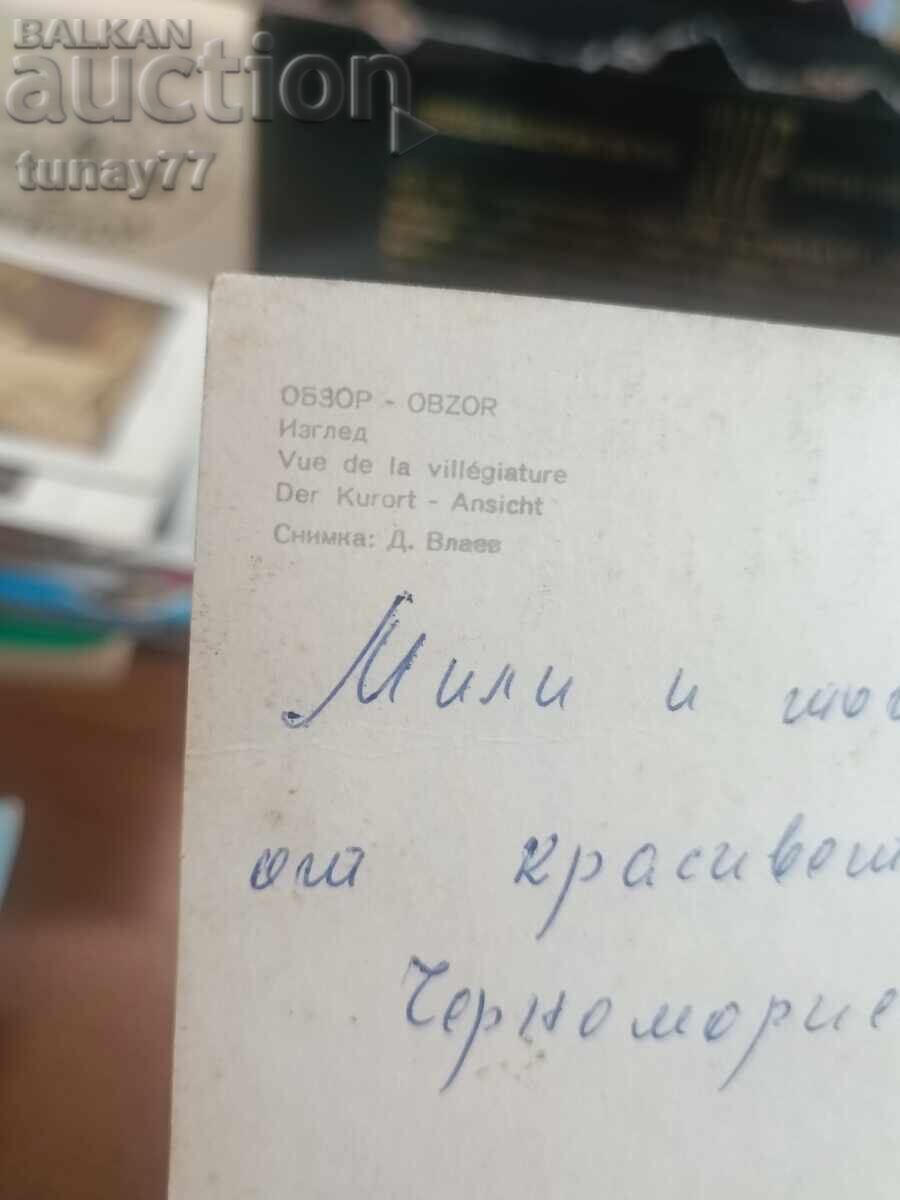 BALKAN
auction
tunay77
ОБЗОР - OBZOR
Изглед
Vue de la villégiature
Der Kurort - Ansicht
Снимка: Д. Влаев
Мили и
от красивот
Черноморие